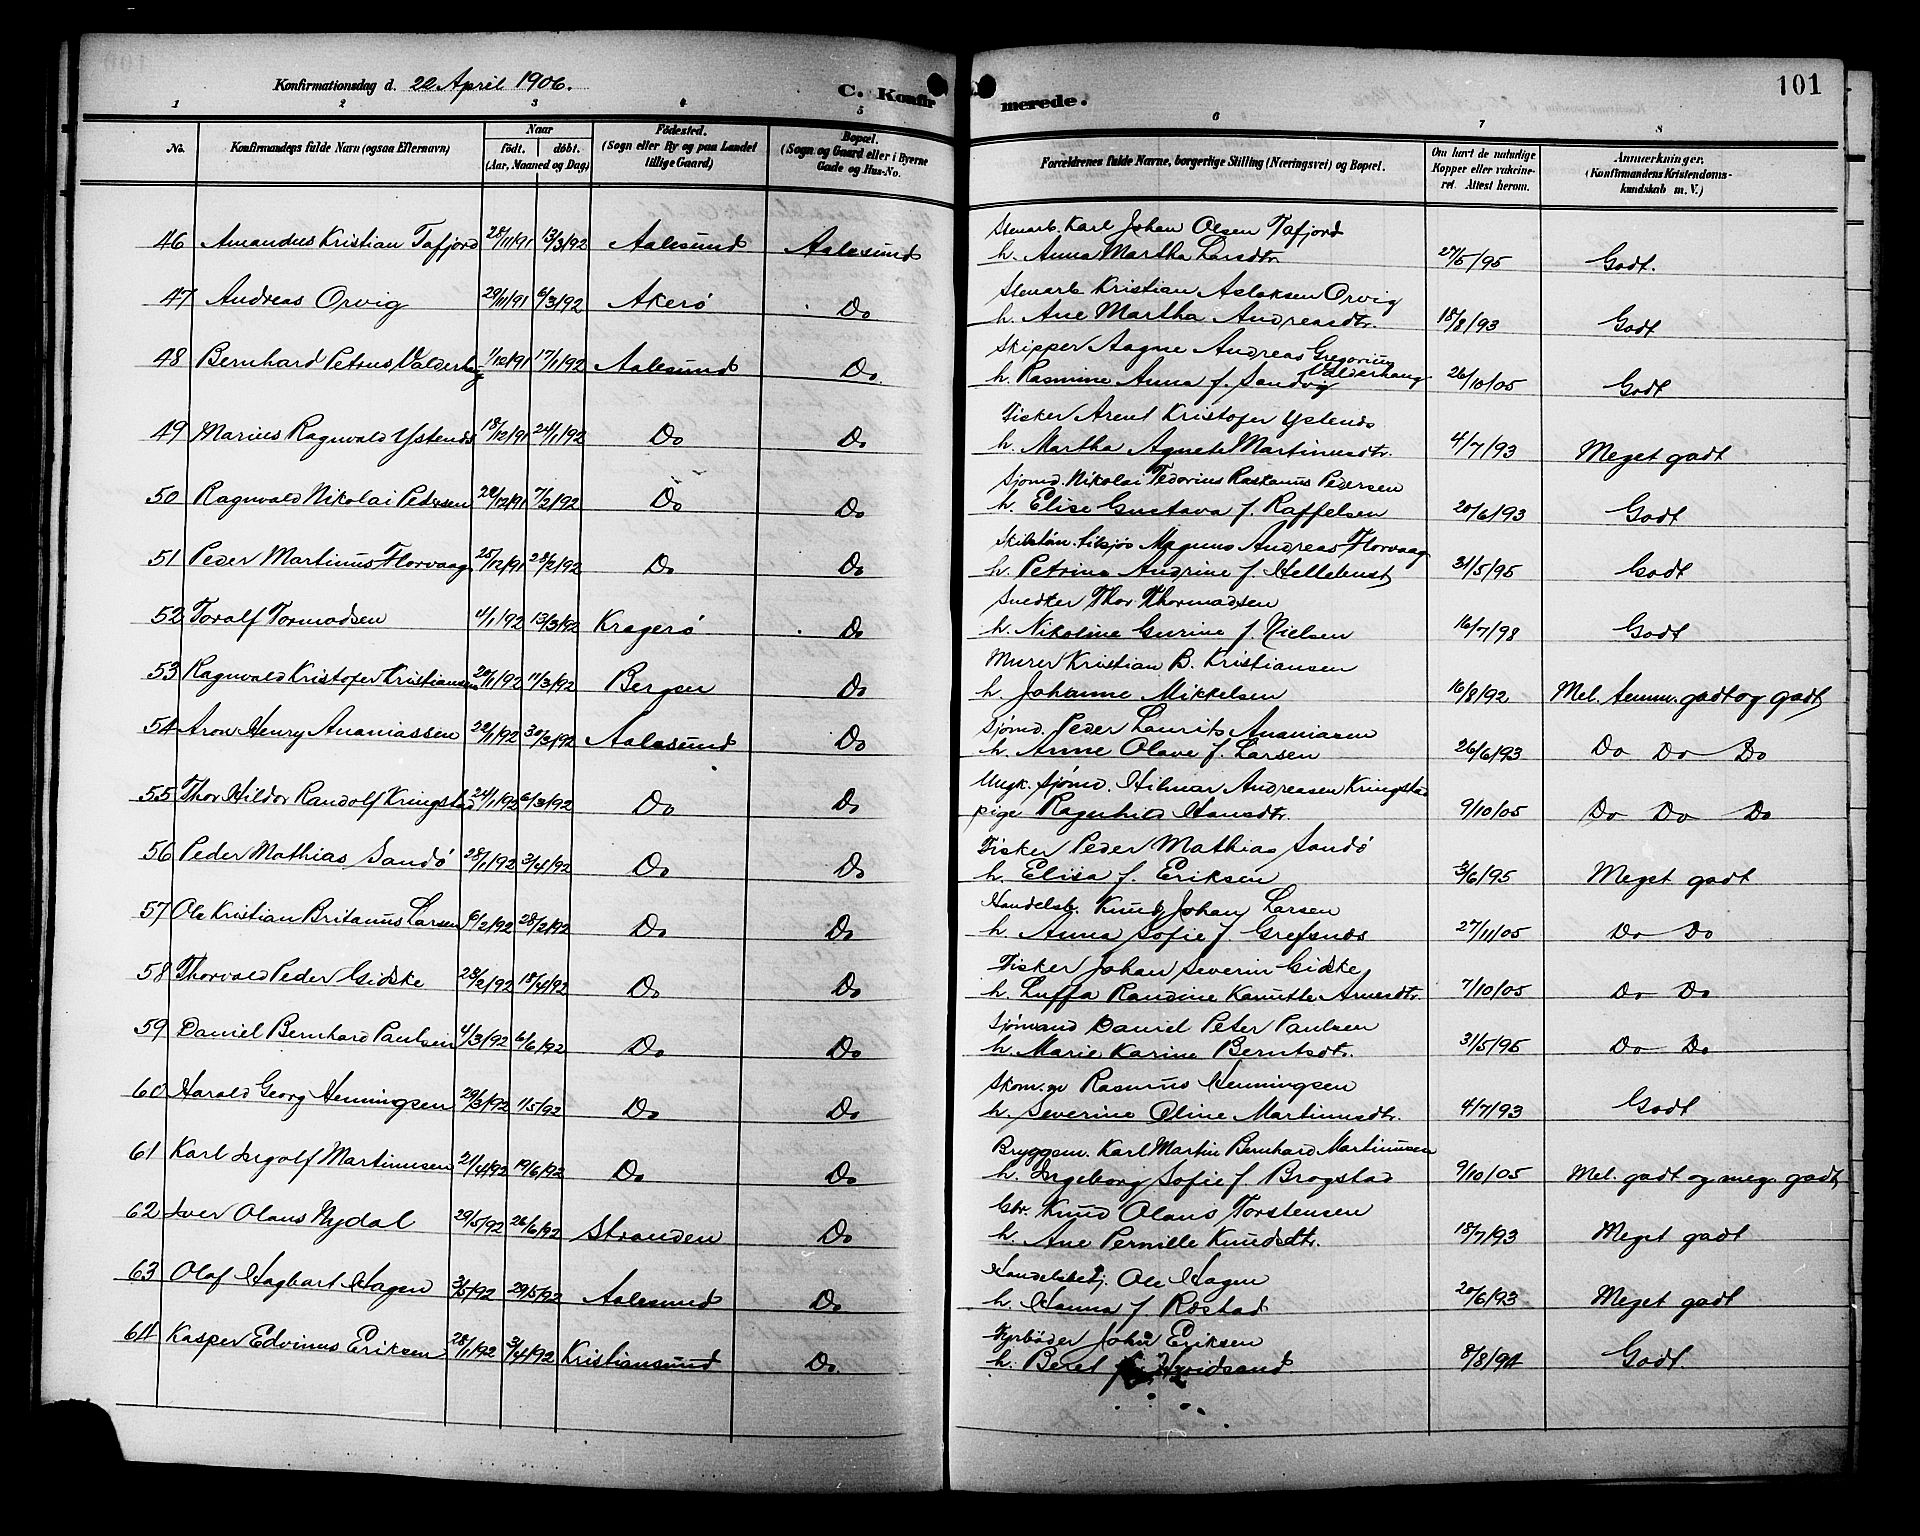 Konfirmationsdag d. 22 April 1906.
C. Konfirmerede.
101
1 2 3 4 5 6 7 8
No.
Konfirmandens fulde Navn (ogsaa Efternavn)
Naar
født. døbt.
(Aar, Maaned og Dag)
Fødested.
(Sogn eller By og paa Landet
tillige Gaard)
Bopæl.
(Sogn og Gaard eller i Byerne
Gade og Hus-No.
Forældrenes fulde Navne, borgerlige Stilling (Næringsvei) og Bopæl.
Om havt de naturlige
Kopper eller vakcine-
ret. Attest herom.
Anmærkninger.
(Konfirmandens Kristendoms-
kundskab m. V.)
46 Amandus Kristian Tafjord 28/11/91 13/3/92 Aalesund Aalesund Stenarb. Karl Johan Olsen Tafjord
h. Anna Martha Larsdtr. 27/5/95 Godt.
47 Andreas Orvig 29/11/91 6/3/92 Akerö Do Stenarb Kristian Aslaksen Orvig
h. Ane Martha Andreasdtr. 18/8/93 Godt
48 Bernhard Petrus Valderhaug 1/12/91 17/1/92 Aalesund Do. Skipper Aagne Andreas Gregorius
Valderhaug
h. Rasmine Anna f. Sandvig 26/10/05 Godt
49 Marius Ragnvald Ystenes 18/12/91 24/1/92 Do Do Fisker Arent Kristofer Ystenes
h. Martha Agnete Martinusdtr. 4/7/93 Meget godt
50 Ragnvald Nikolai Pedersen 22/12/91 7/2/92 Do Do Sjömd. Nikolai Tedorius Raskanus Pedersen
h. Elise Gustava f. Raffelsen 20/6/93 Godt
51 Peder Martinus Florvaag 25/12/91 28/2/92 Do Do Magnus Andreas Florvaag
h. Petrine Andrine f. Hellebust 31/5/95 Godt
52 Toralf Tormodsen 4/1/92 13/3/92 Kragerö Do Snedker Thor Thormadsen
h. Nikoline Gurine f. Nielsen 16/7/98 Godt
53 Ragnvald Kristofer Kristiansen 20/1/92 11/3/92 Bergen Do Murer Kristian B. Kristiansen
h. Johanne Mikkelsen 16/8/92 Mel. temm. godt og godt
54 Aron Henry Ananiassen 22/1/92 30/3/92 Aalesund Do Sjömd. Peder Laurits Ananiassen
h. Anne Olave f. Larsen 26/6/93 Do Do Do
55 Thor Hildor Randolf Kringstad 24/1/92 6/3/92 Do Do Ungk. sjömd. Hilmar Andreasen Kringstad
pige Ragnhild Hansdtr. 9/10/05 Do Do Do
56 Peder Mathias Sandö 28/1/92 3/4/92 Do Do Fisker Peder Mathias Sandö
h. Elisa f. Eriksen 3/6/95 Meget godt
57 Ole Kristian Britanus Larsen 6/2/92 28/2/92 Do Do Handelsb. Knud Johan Larsen
h. Anna Sofie f. Grefsnes 27/11/05 Do Do
58 Thorvald Peder Gidske 23/2/92 18/4/92 Do Do Fisker Johan Severin Gidske
h. Luffa Randine Kanutte Arnesdtr. 7/10/05 Do Do
59 Daniel Bernhard Paulsen 4/3/92 6/6/92 Do Do Sjömand Daniel Peter Paulsen
h. Marie Karine Berntsdtr. 31/5/95 Do Do
60 Harald Georg Henningsen 29/3/92 1/5/92 Do Do Skom. Rasmus Henningsen
h. Severine Oline Martinusdtr. 4/7/93 Godt
61 Karl Ingolf Martinusen 21/4/92 19/6/92 Do Do Bryggem. Karl Martin Bernhard Martinusen
h. Ingeborg Sofie f. Brogstad 9/10/05 Mel. godt og meg. godt
62 Iver Olaus Nydal 29/5/92 26/6/92 Stranden Do Gbr. Knud Olaus Torstensen
h. Ane Pernille Knudsdtr. 18/7/93 Meget godt
63 Olaf Hagbart Hagen 3/5/92 29/5/92 Aalesund Do Handelsbetj. Ole Hagen
h. Hanna f. Rostad 20/6/93 Meget godt
64 Kasper Edvinus Eriksen 28/1/92 3/4/92 Kristiansund Do. Fyrböder John Eriksen
h. Beret f. Hvidsand 8/8/94 Godt.